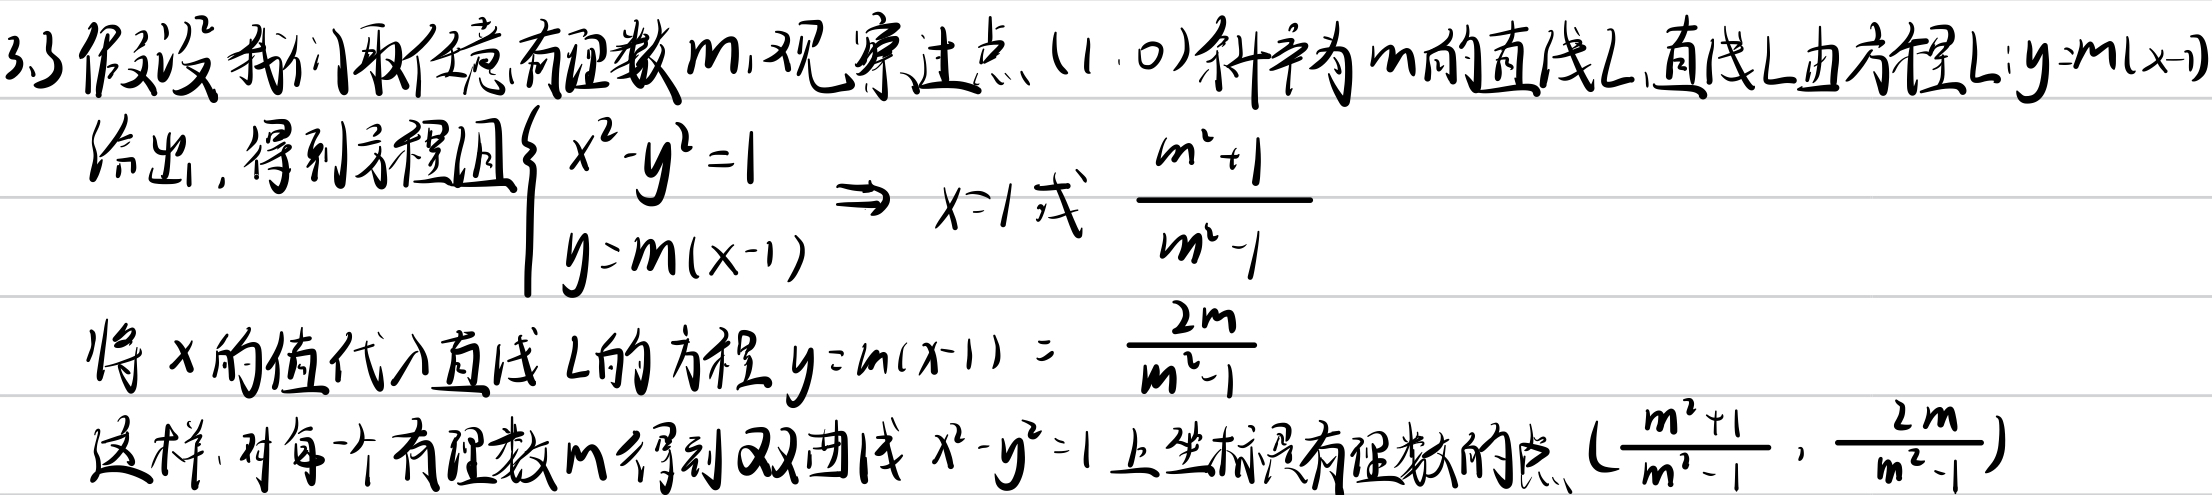 3.3 假设我们取任意有理数 m, 观察过点 (1,0) 斜率为 m 的直线 L, 直线 L 由方程 L: y=m(x-1)
给出, 得到方程组 { x²-y²=1 ; y=m(x-1) ⇒ x=1 或 (m²+1)/(m²-1)
将 x 的值代入直线 L 的方程 y=m(x-1) = 2m/(m²-1)
这样, 对每一个有理数 m 得到双曲线 x²-y²=1 上坐标是有理数的点 ((m²+1)/(m²-1), 2m/(m²-1))